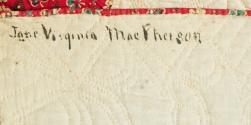 Jane Virginia MacPherson